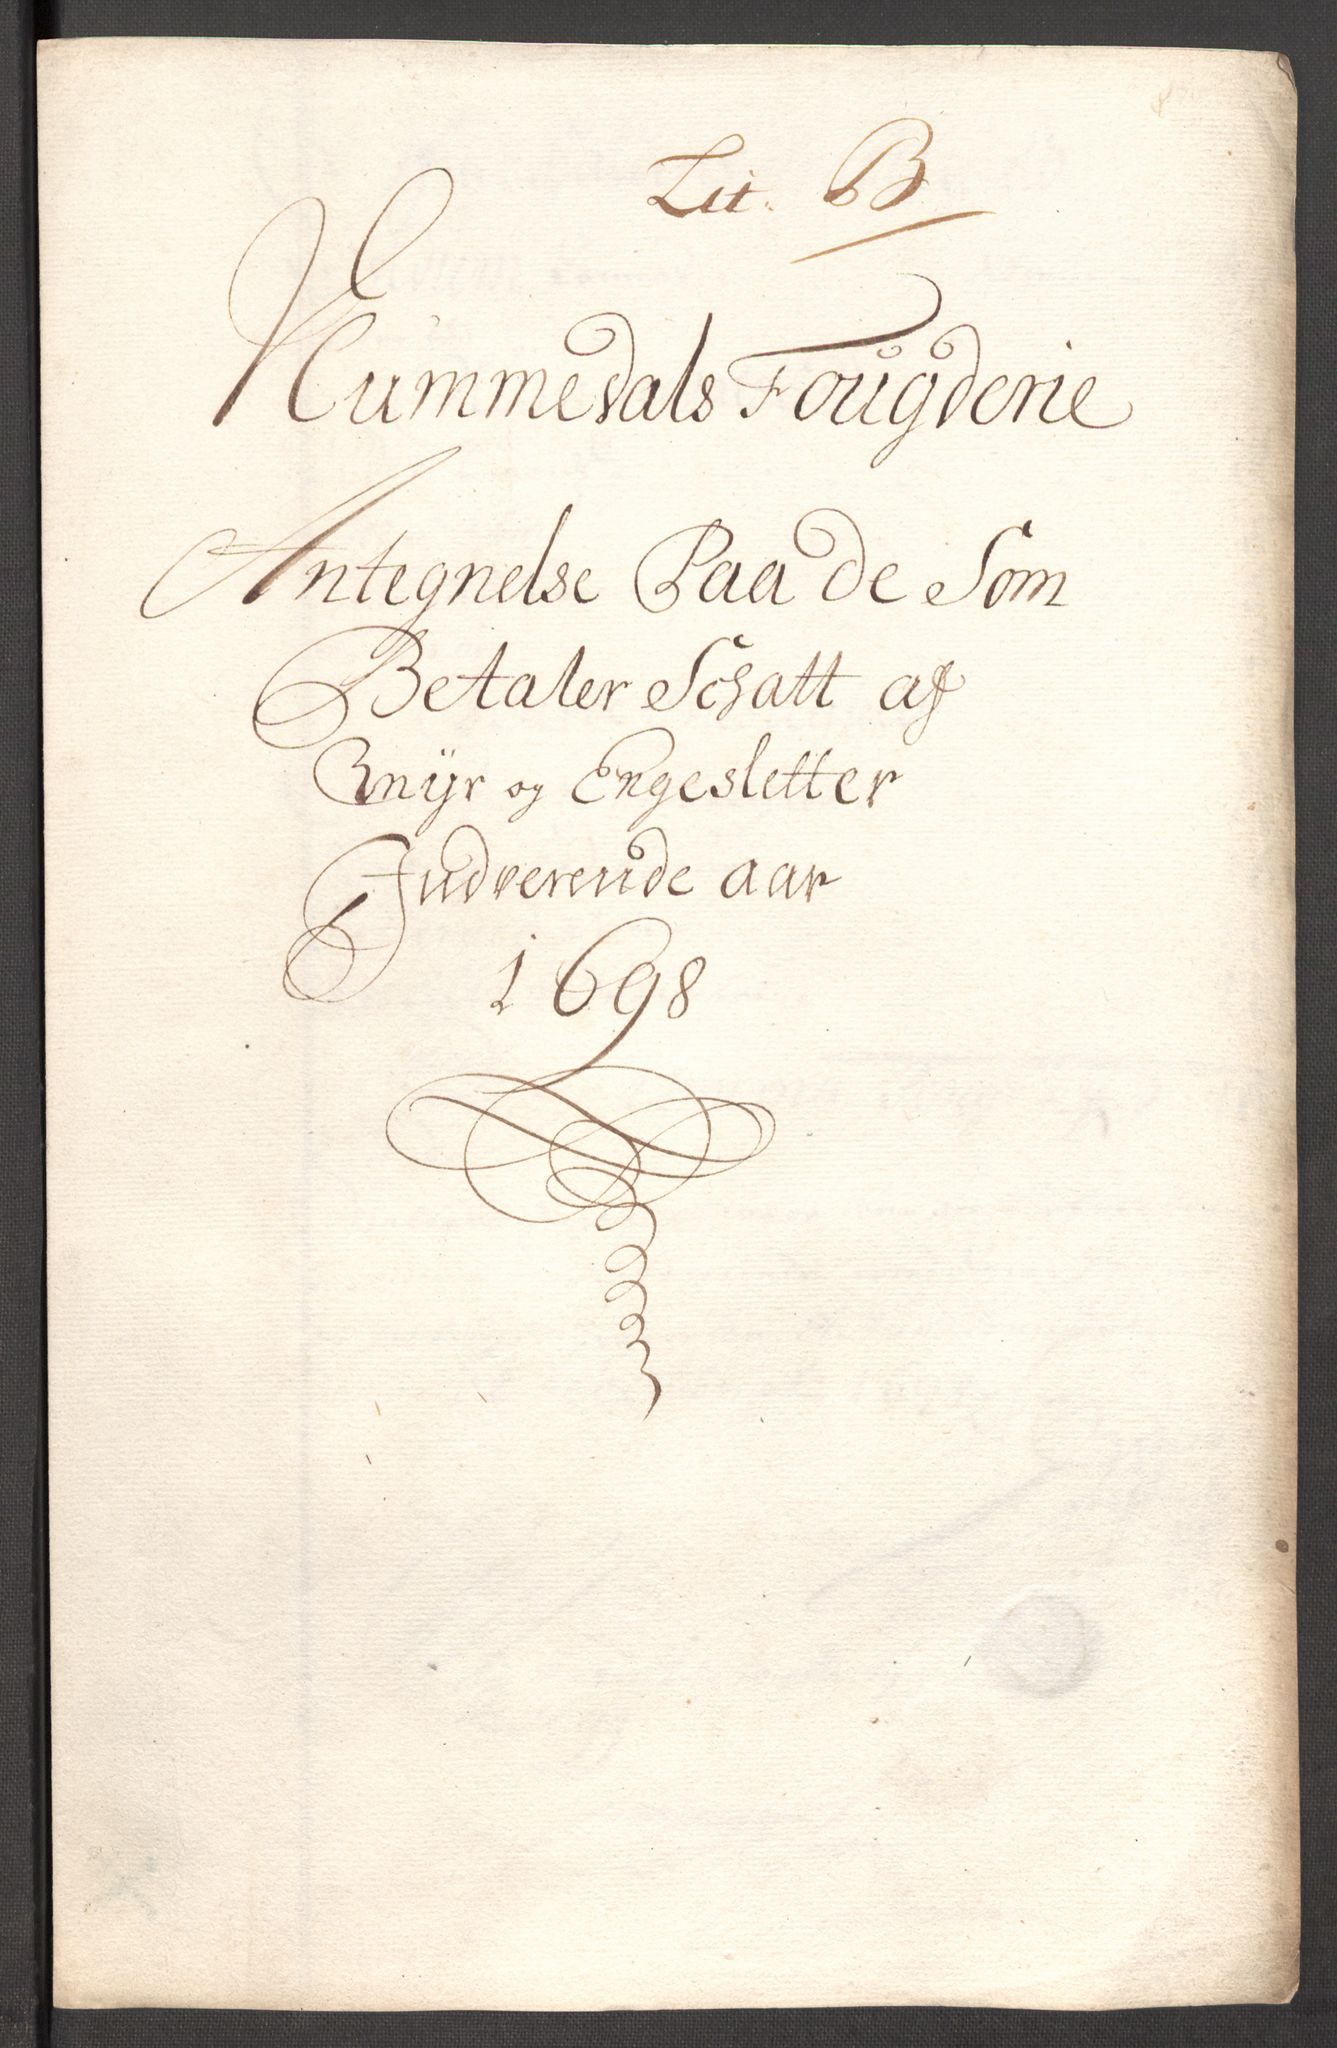 Lit. B
Nummedals Fougderie
Antegnelse Paa de Som
Betaler Schatt af
Rnÿr og Engesletter
Indverende aar
1698